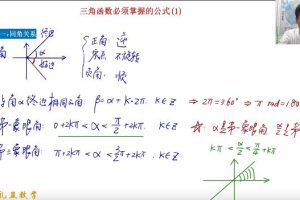 三角函数必须掌握的公式(1)
一、同角关系 终边
正角: 逆
零角 不旋转
始边
负角: 顺
角α终边相同的角: β=α+k·2π, k∈Z ⇒ 2π=360° ⇒ π rad=180
第一象限角: 0+2kπ<α<π/2+2kπ. k∈Z ☆: α是第一象限角 α/2是
第三象限角: π+2kπ<α<3/2π+2kπ. k∈Z kπ<α/2<π/4+kπ
礼益数学